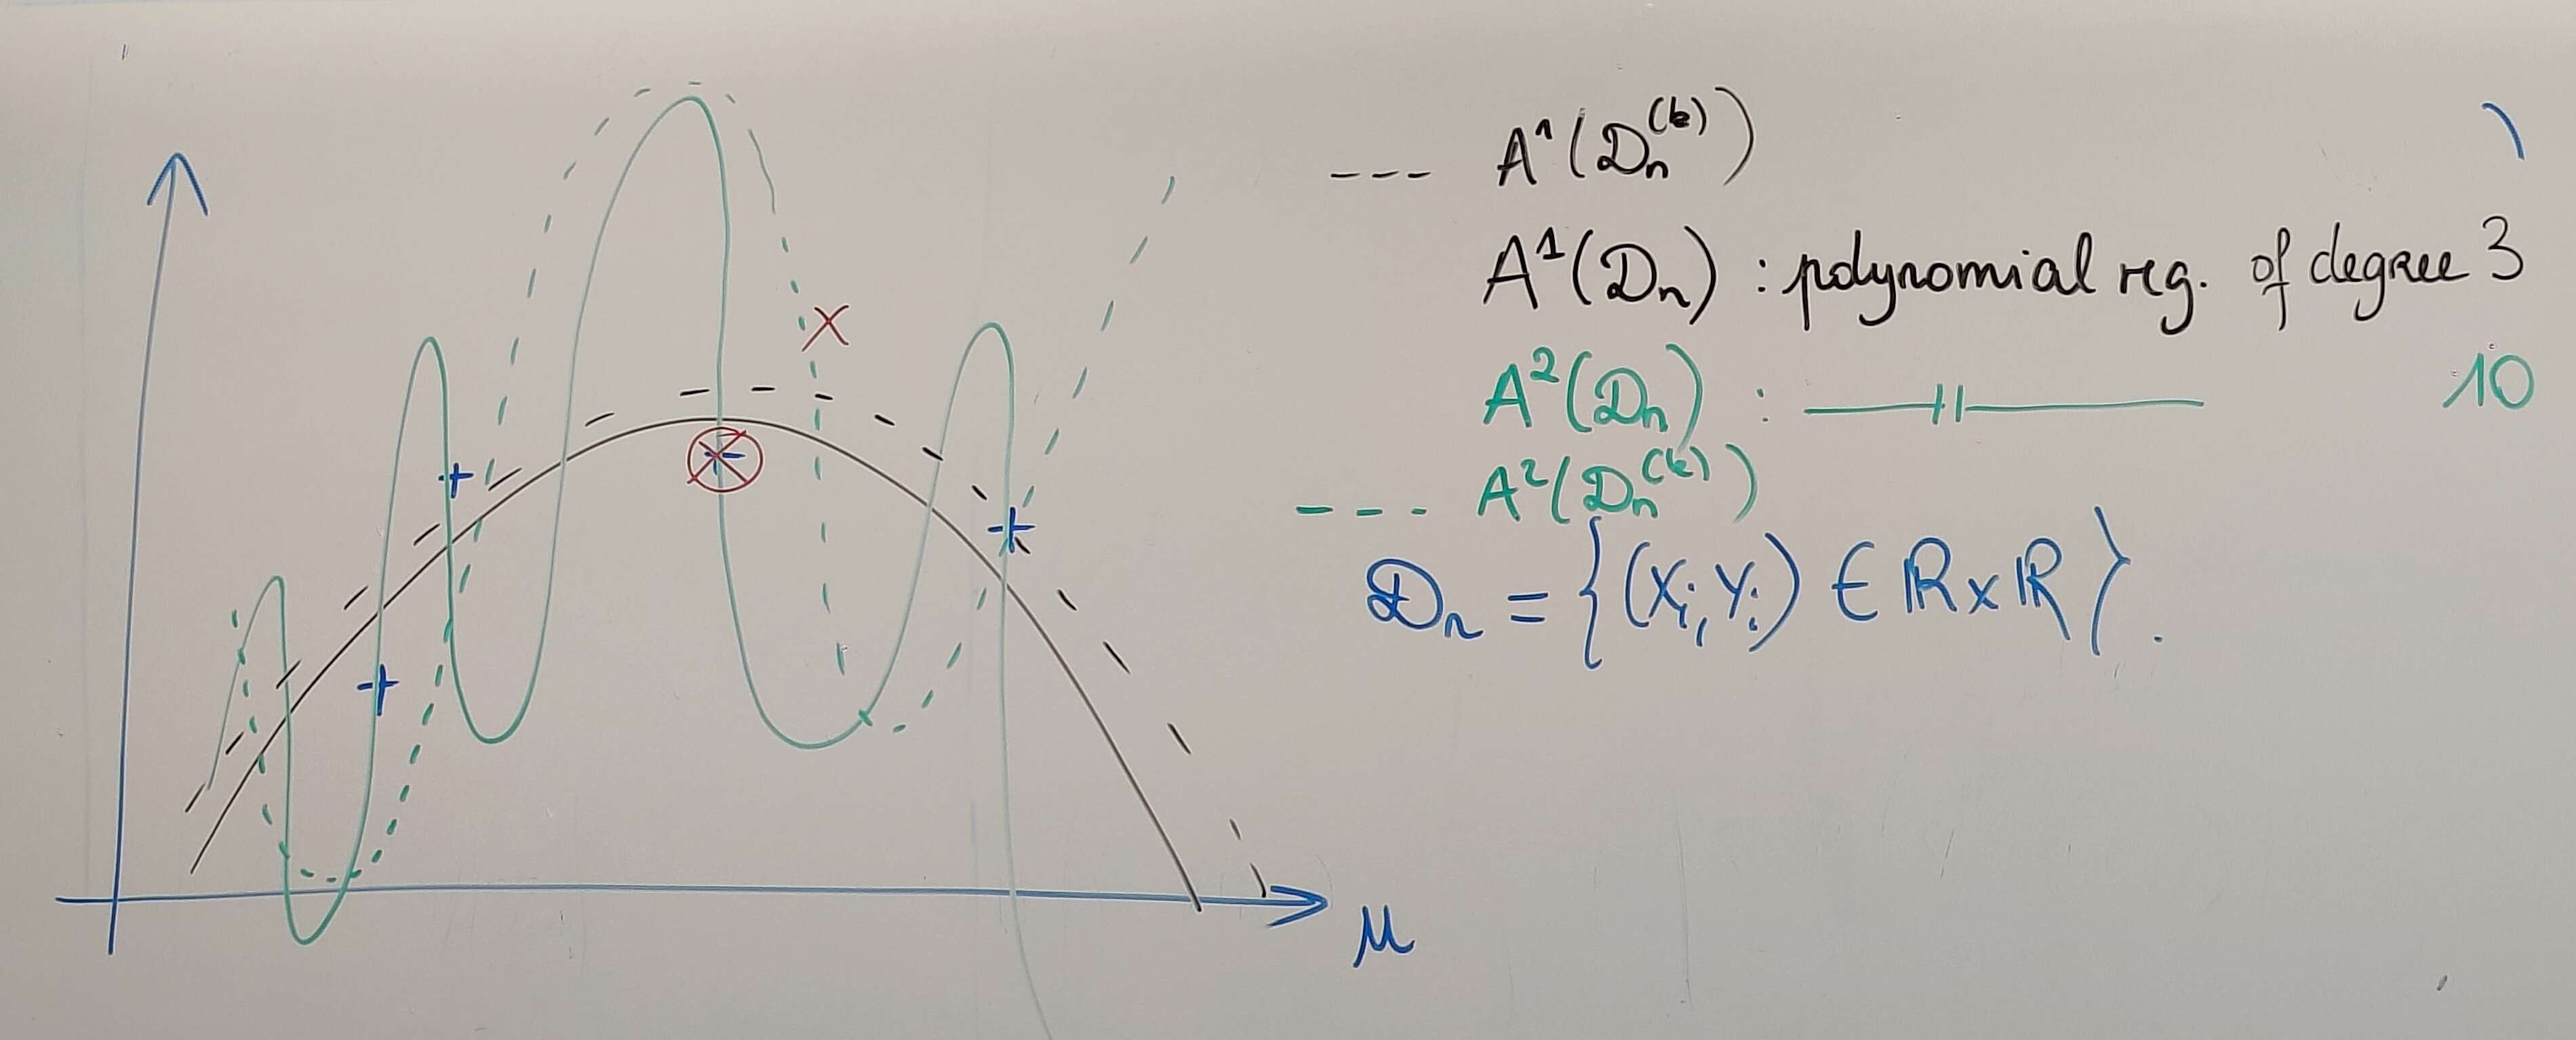 --- A¹(Dₙ⁽ᵏ⁾)
A¹(Dₙ) : polynomial reg. of degree 3
A²(Dₙ) : —||— 10
--- A²(Dₙ⁽ᵏ⁾)
Dₙ = {(Xᵢ, Yᵢ) ∈ ℝ×ℝ}.
μ